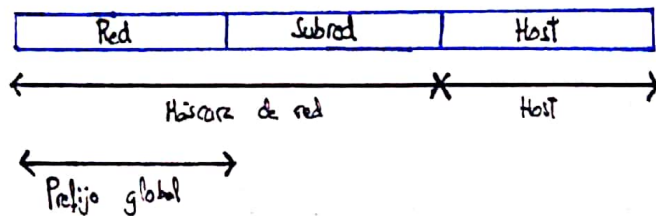 Red Subred Host
Máscara de red Host
Prefijo global